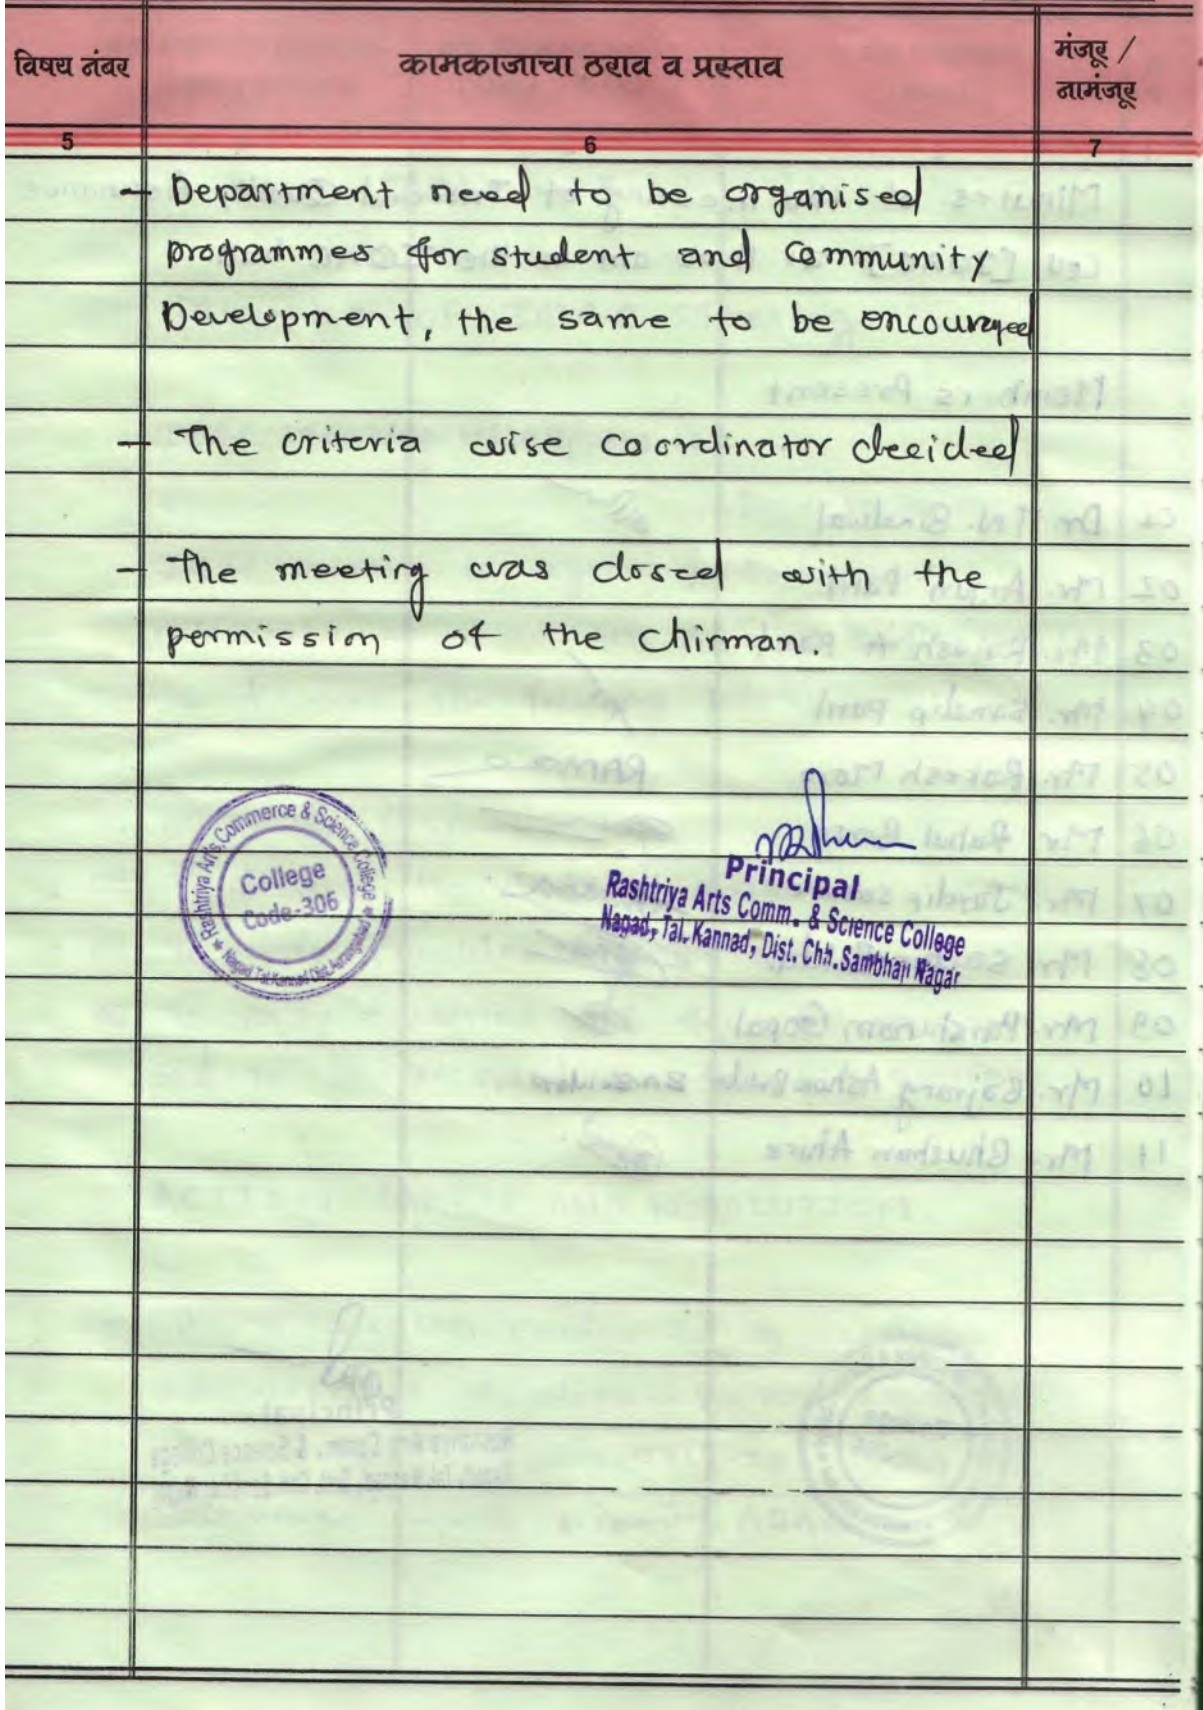 विषय नंबर
कामकाजाचा ठराव व प्रस्ताव
मंजूर /
नामंजूर
5
6
7
- Department need to be organised
programmes for student and community
Development, the same to be encouraged
- The criteria wise coordinator decided
- The meeting was closed with the
permission of the chirman.
Rashtriya Arts, Commerce & Science College
College
Code-306
Nagad Tal. Kannad Dist. Aurangabad
Principal
Rashtriya Arts Comm. & Science College
Nagad, Tal. Kannad, Dist. Chh. Sambhaji Nagar